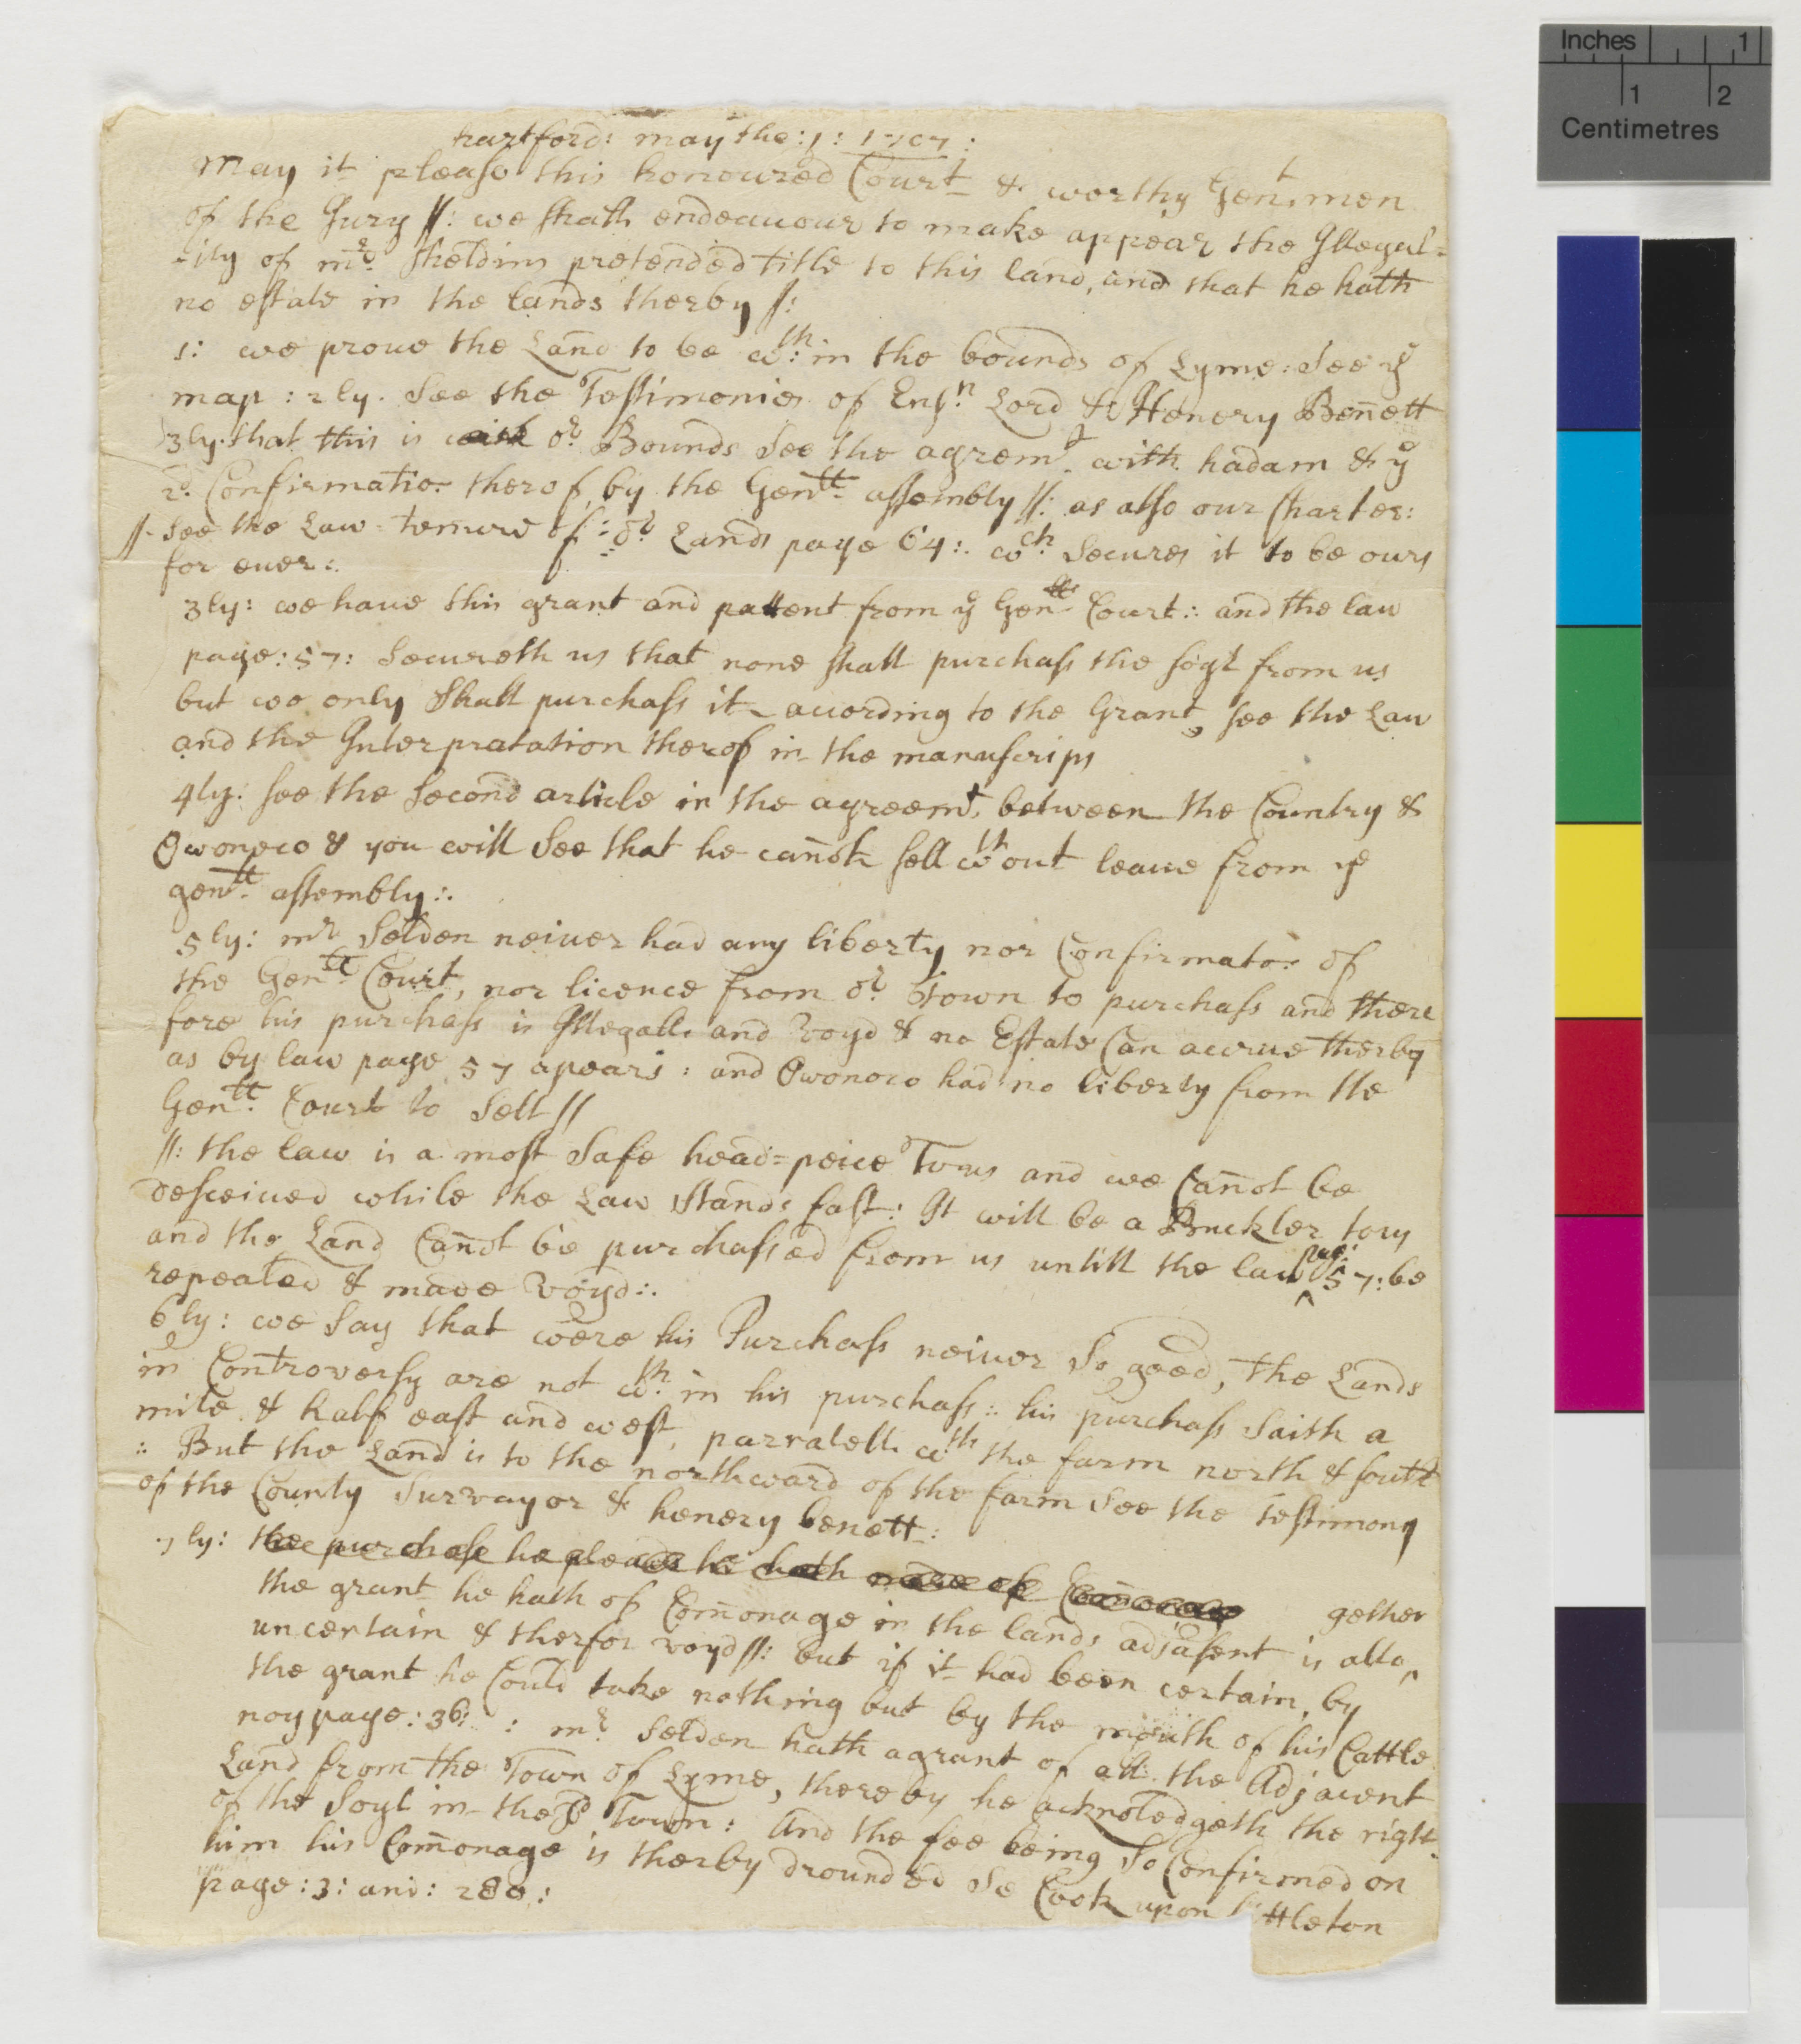 hartford: may the: 1: 1707:
May it please this honoured Court & worthy Gentmen
of the Jury //: we shall endeauour to make appear the Illegal=
=ity of mr sheldins pretended title to this land, and that he hath
no estate in the lands therby //:
1: we proue the Land to be wth: in the bounds of Lyme: See ye
map: 2ly. See the Testimonies of Ensn Lord & Henery Bennett
3ly. that this is or Bounds See the agremt with hadam & ye
Confirmatio: therof by the Genll assembly //: as also our Charter:
//. See the Law tenure of: or Lands page 64:. wch Secures it to be ours
for euer:.
3ly: we haue this grant and pattent from ye Genll Court:. and the law
page: 57: Secureth us that none shall purchass the soyl from us
but we only Shall purchass it according to the Grant, see the Law
and the Interpratation therof in the manuscrips
4ly: see the Second article in the agreemt. between the Country &
Owoneco & you will See that he canot sell wth out leaue from ye
genll assembly:.
5ly: mr Selden neiuer had any liberty nor Confirmato: of
the Genll Court, nor licence from or town to purchass and there
fore his purchass is Illegall and voyd & no Estate Can accrue therby
as by law page 57 apears: and Owonoco had no liberty from the
Genll. Court to Sell //
//: the law is a most Safe head=peice To us and we Canot be
desceiued while the Law Stands fast: It will be a Buckler to us
and the Land Canot be purchassed from us untill the law page: 57: be
repealed & made voyd:.
6ly: we Say that were his Purchass neiuer So good, the Lands
in Controversy are not wth. in his purchass:: his purchass Saith a
mile & half east and west, parralell wth the farm north & south
:: But the Land is to the northward of the farm See the testimony
of the County Survayor & henery benett:
7ly: the purchase he pleads he hath
the grant he hath of Comonage in the lands adjasent is alto gether
uncertain & therfor voyd //: but if it had been certain, by
the grant he Could take nothing but by the mouth of his Cattle
noy page: 36: : mr Selden hath a grant of all the Adjacent
Land from the Town of Lyme, there by he acknoledgeth the right
of the Soyl in the sd Town: And the fee being So Confirmed on
him his Comonage is therby drounded Se Cook upon ttleton
page: 3: and: 280: